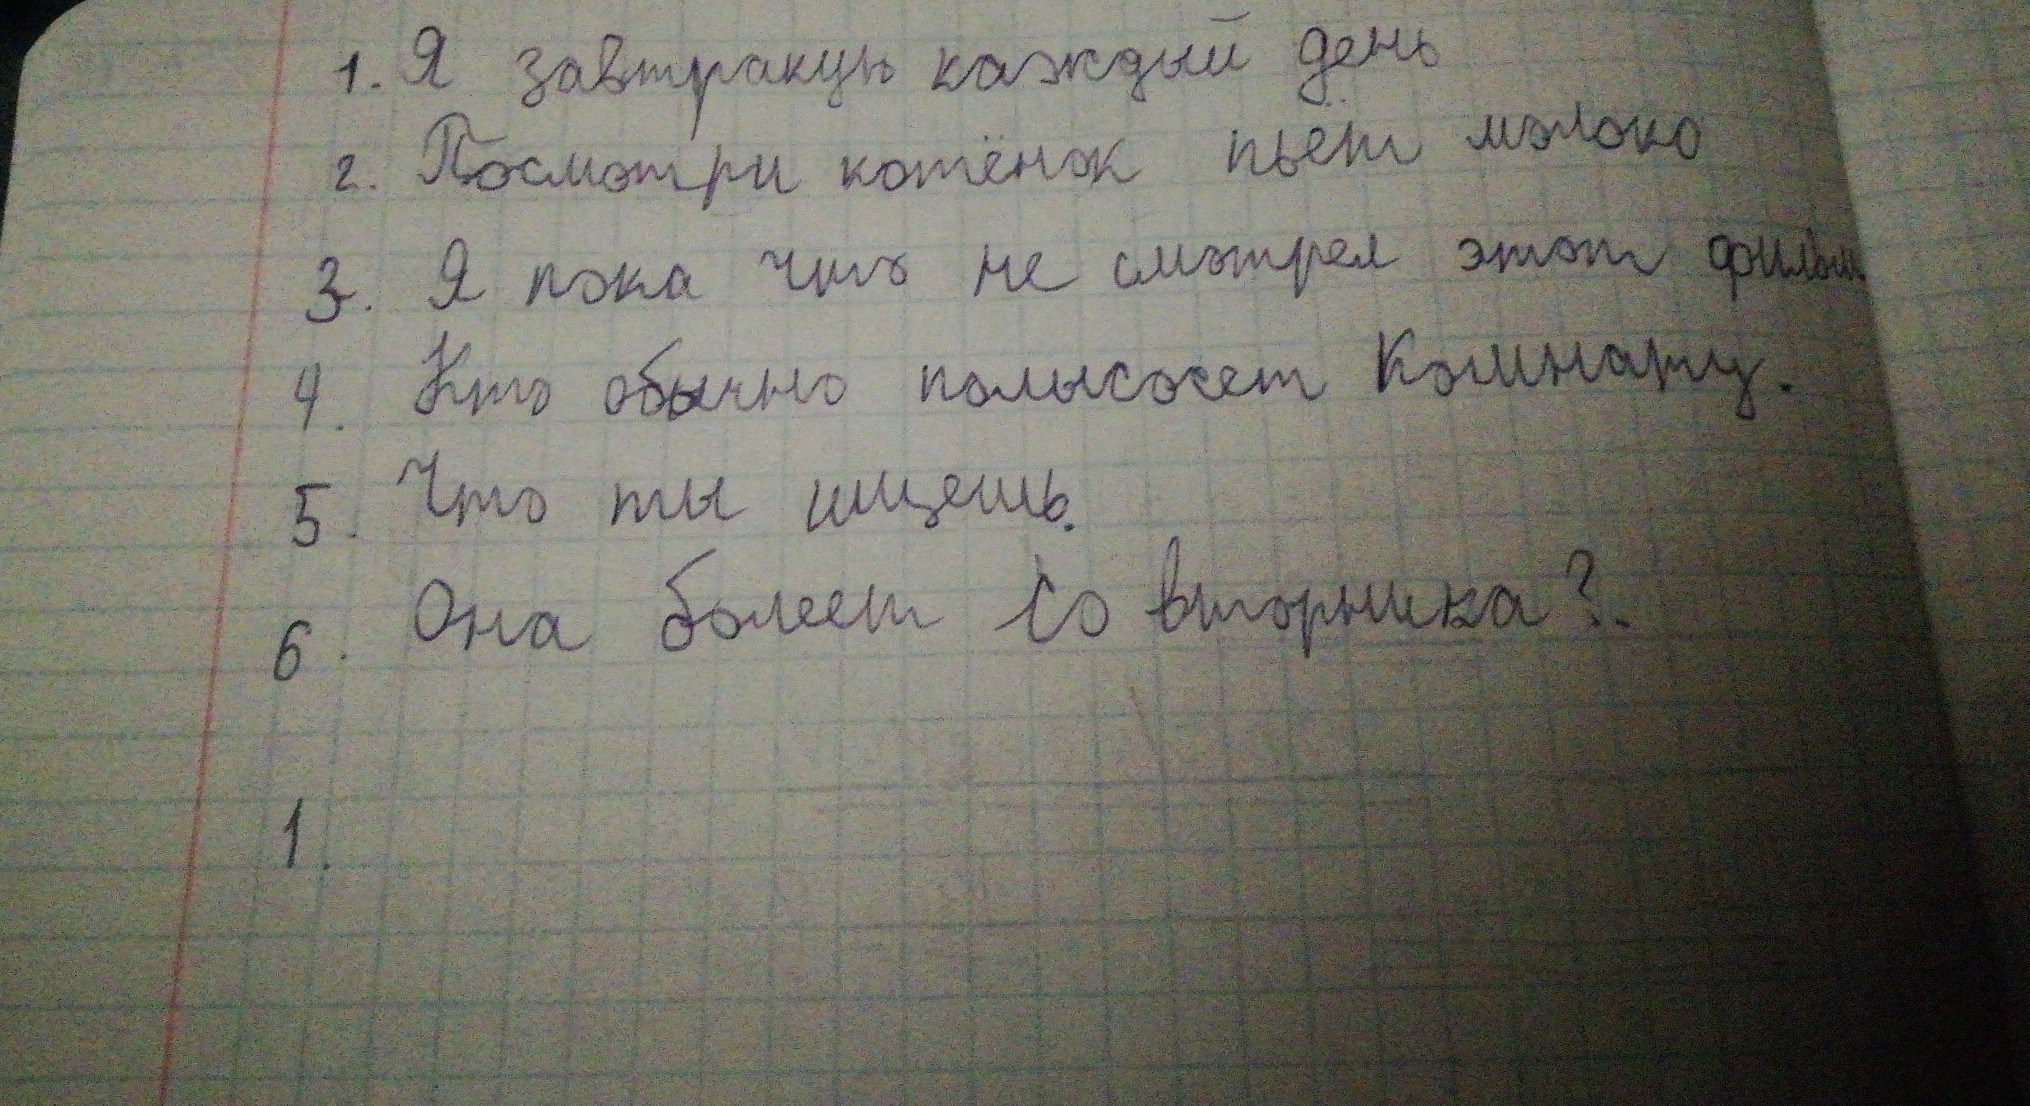 1. Я завтракую каждый день
2. Посмотри котёнок пьёт молоко
3. Я пока что не смотрел этот фильм.
4. Кто обычно полысосет Комнату.
5. Что ты ищешь.
6. Она болеет со вторника?.
1.